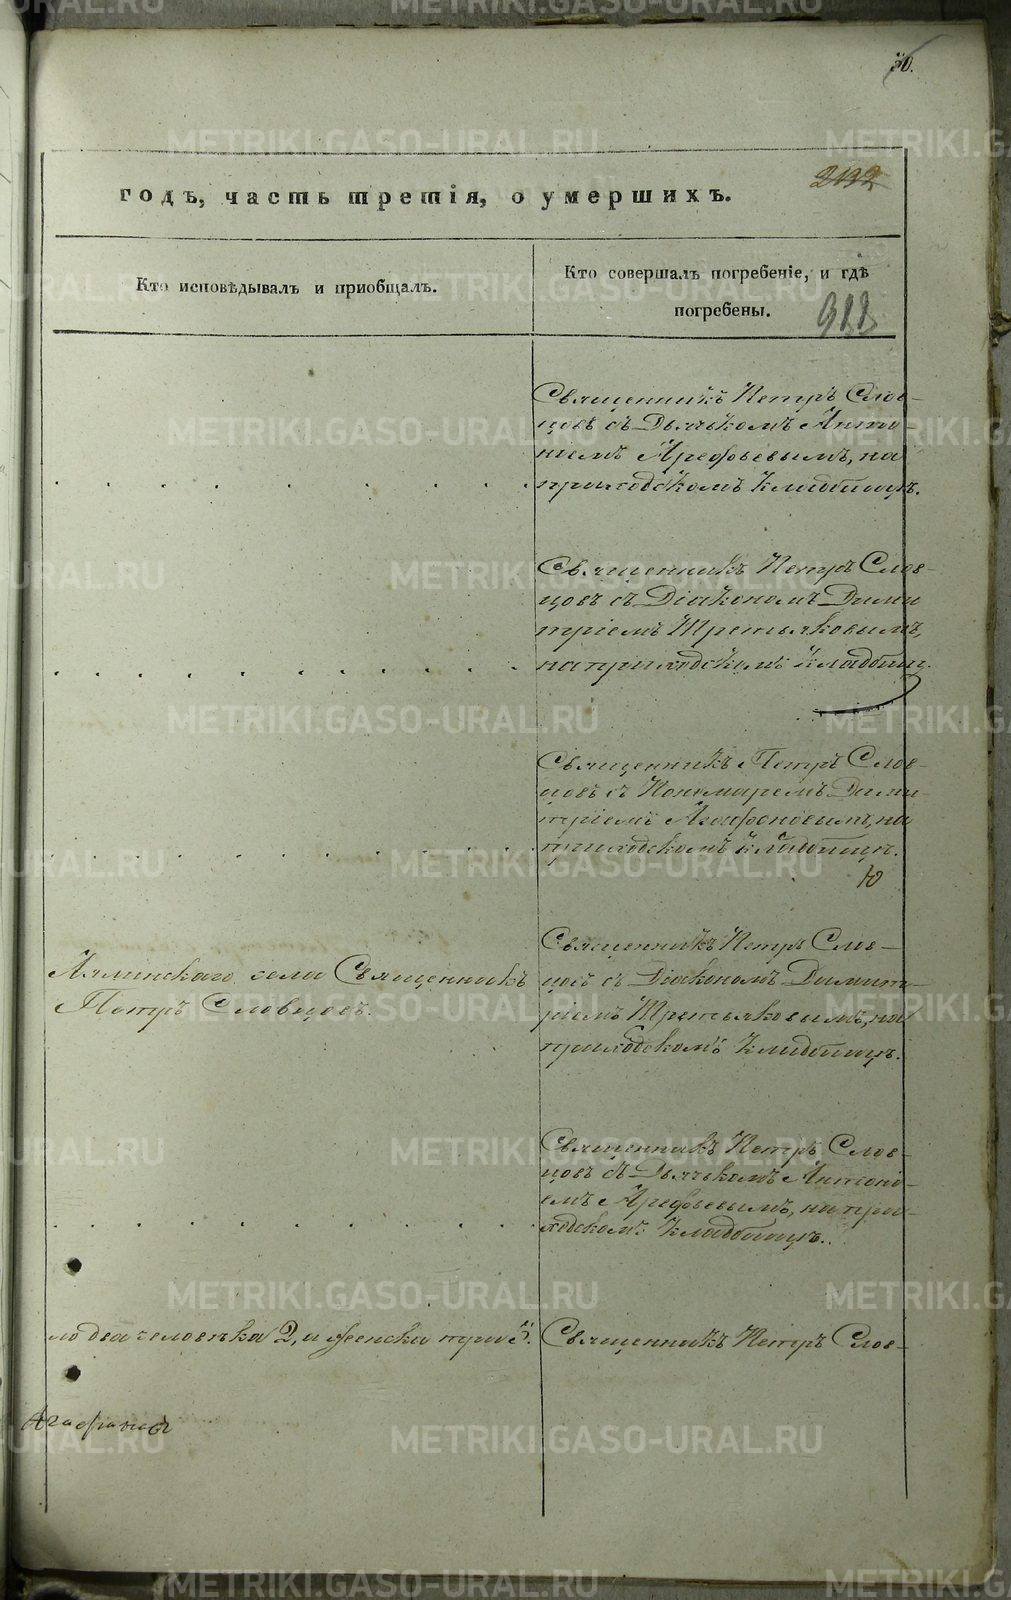 30.
2132
годъ, часть третія, о умершихъ.
Кто исповѣдывалъ и приобщалъ.
Кто совершалъ погребеніе, и гдѣ
погребены.
Священникъ Петръ Слов-
цовъ съ Дьячькомъ Анто
ніемъ Арефьевымъ, на
приходскомъ кладбищѣ.
Священникъ Петръ Слов-
цовъ съ Діакономъ Дими
тріемъ Третьяковымъ,
на приходскомъ кладбищ.
Священникъ Петръ Слов-
цовъ съ Пономаремъ Дими-
тріемъ Агафоновымъ, на
приходскомъ кладбищѣ.
Ю
Лялинскаго села Священникъ
Петръ Словцовъ.
Священникъ Петръ Слов-
цовъ съ Діакономъ Димит-
ріемъ Третьяковымъ, на
приходскомъ кладбищѣ.
Священникъ Петръ Слов-
цовъ съ Дьячькомъ Антоні-
емъ Арефьевымъ, на при-
ходскомъ кладбищѣ.
ло два человѣка 2, и женска
Священникъ Петръ Слов-
Агафоновъ
METRIKI.GASO-URAL.RU